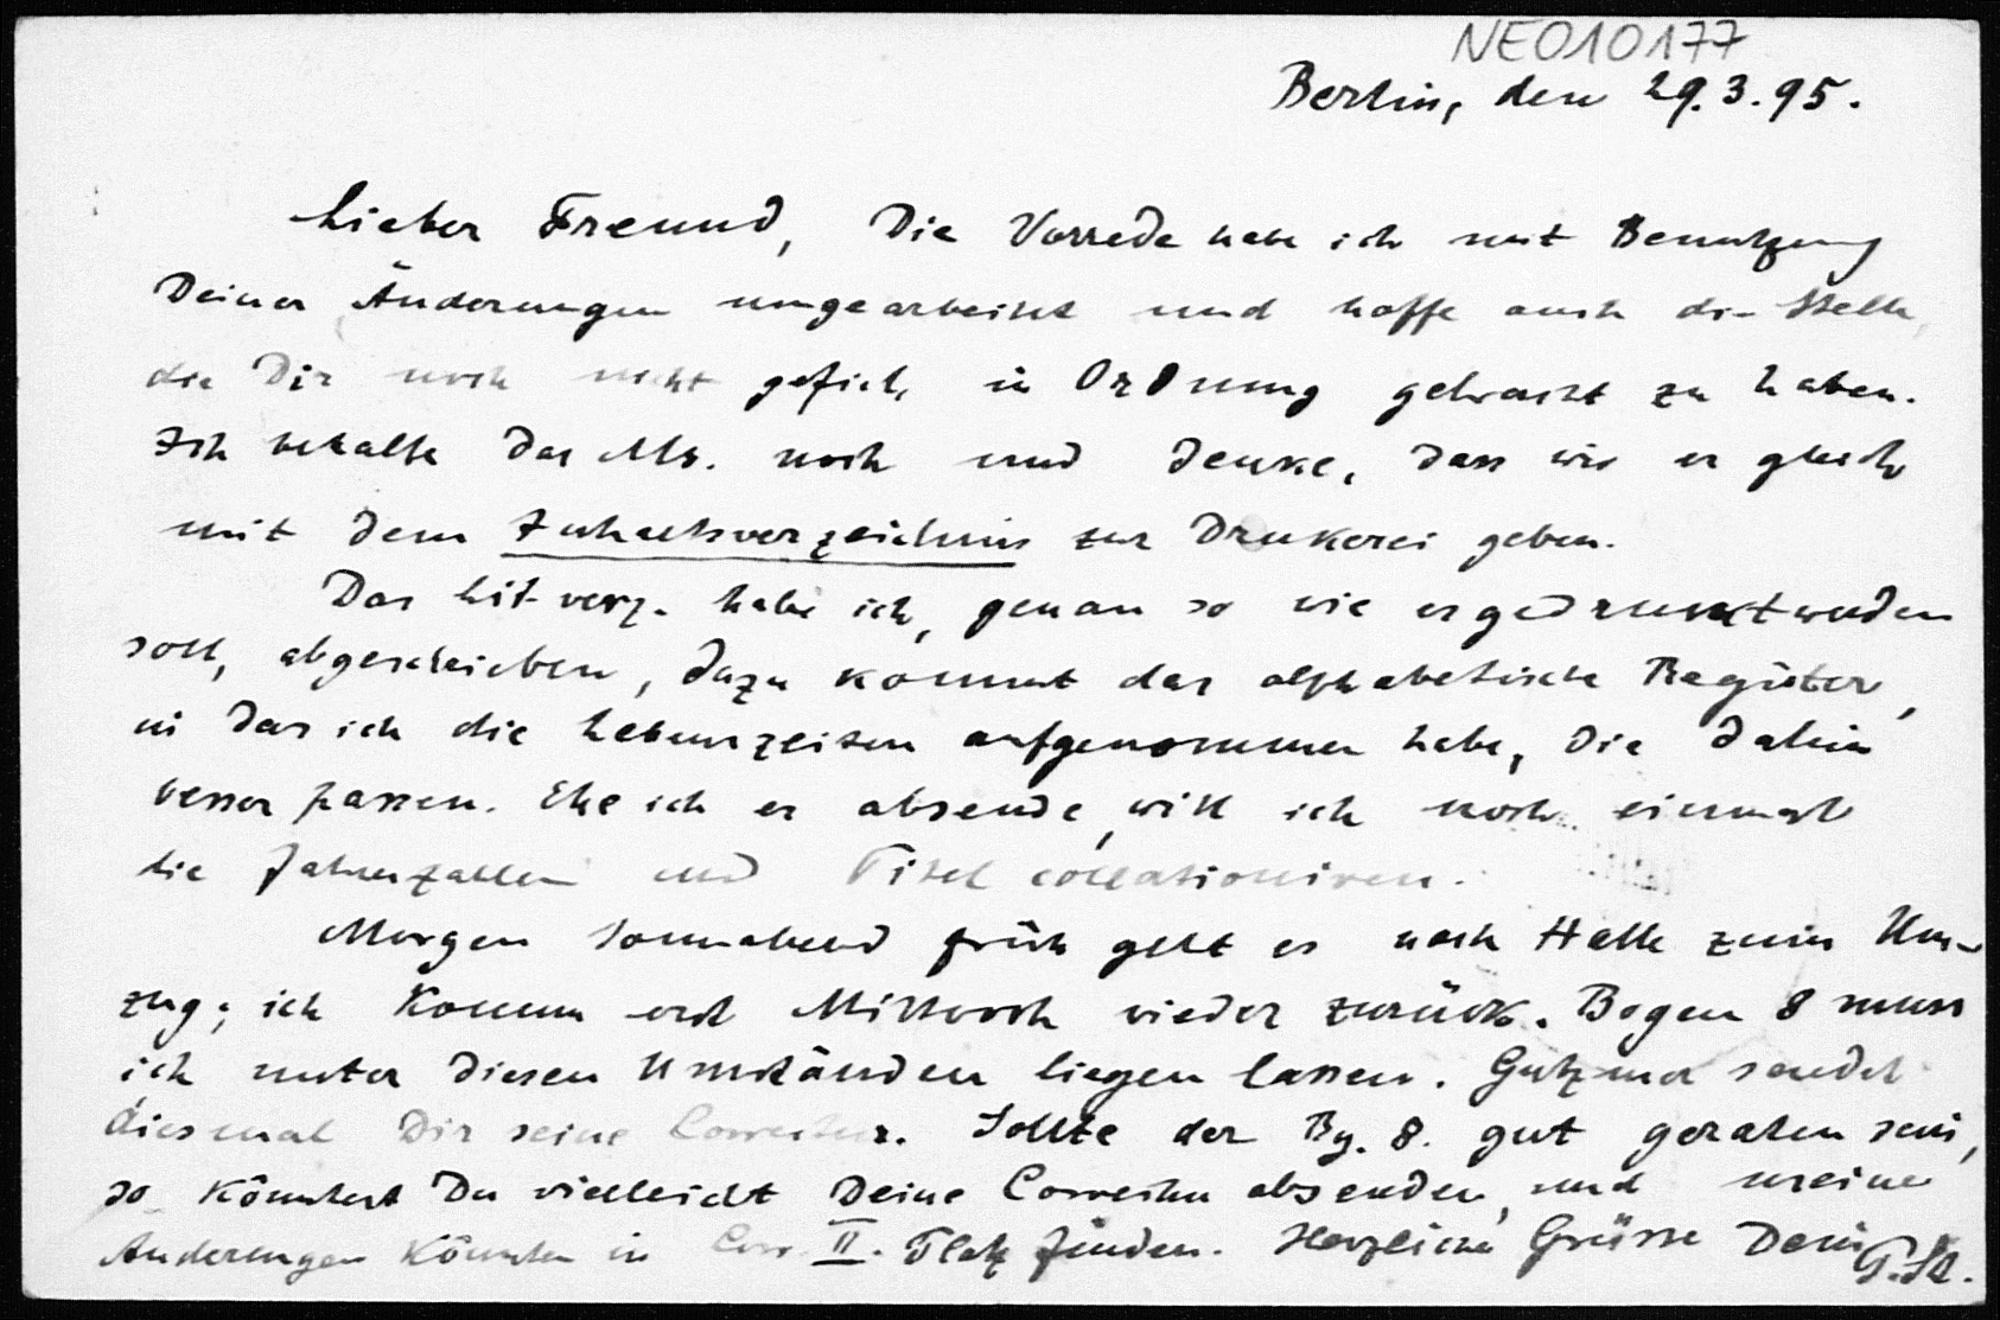 NE010177
Berlin, den 29.3.95.
Lieber Freund, Die Vorrede habe ich mit Benutzung
Deiner Änderungen umgearbeitet und hoffe auch die Stelle,
die Dir noch nicht gefiel, in Ordnung gebracht zu haben.
Ich behalte das Ms. noch und denke, dass wir es gleich
mit dem Inhaltsverzeichnis zur Druckerei geben.
Das Lit-verz. habe ich, genau so wie es gedruckt werden
soll, abgeschrieben, dazu kommt das alphabetische Register,
in das ich die Lebenszeiten aufgenommen habe, die dahin
besser passen. Ehe ich es absende, will ich noch einmal
die Jahreszahlen und Titel collationiren.
Morgen Sonnabend früh geht es nach Halle zum Um-
zug; ich komme erst Mittwoch wieder zurück. Bogen 8 muss
ich unter diesen Umständen liegen lassen. Gutzmer sendet
diesmal Dir seine Correctur. Sollte der Bg. 8. gut geraten sein,
so könntest Du vielleicht Deine Correctur absenden, und meine
Änderungen könnten in Corr. II. Platz finden. Herzliche Grüsse Dein P. St.